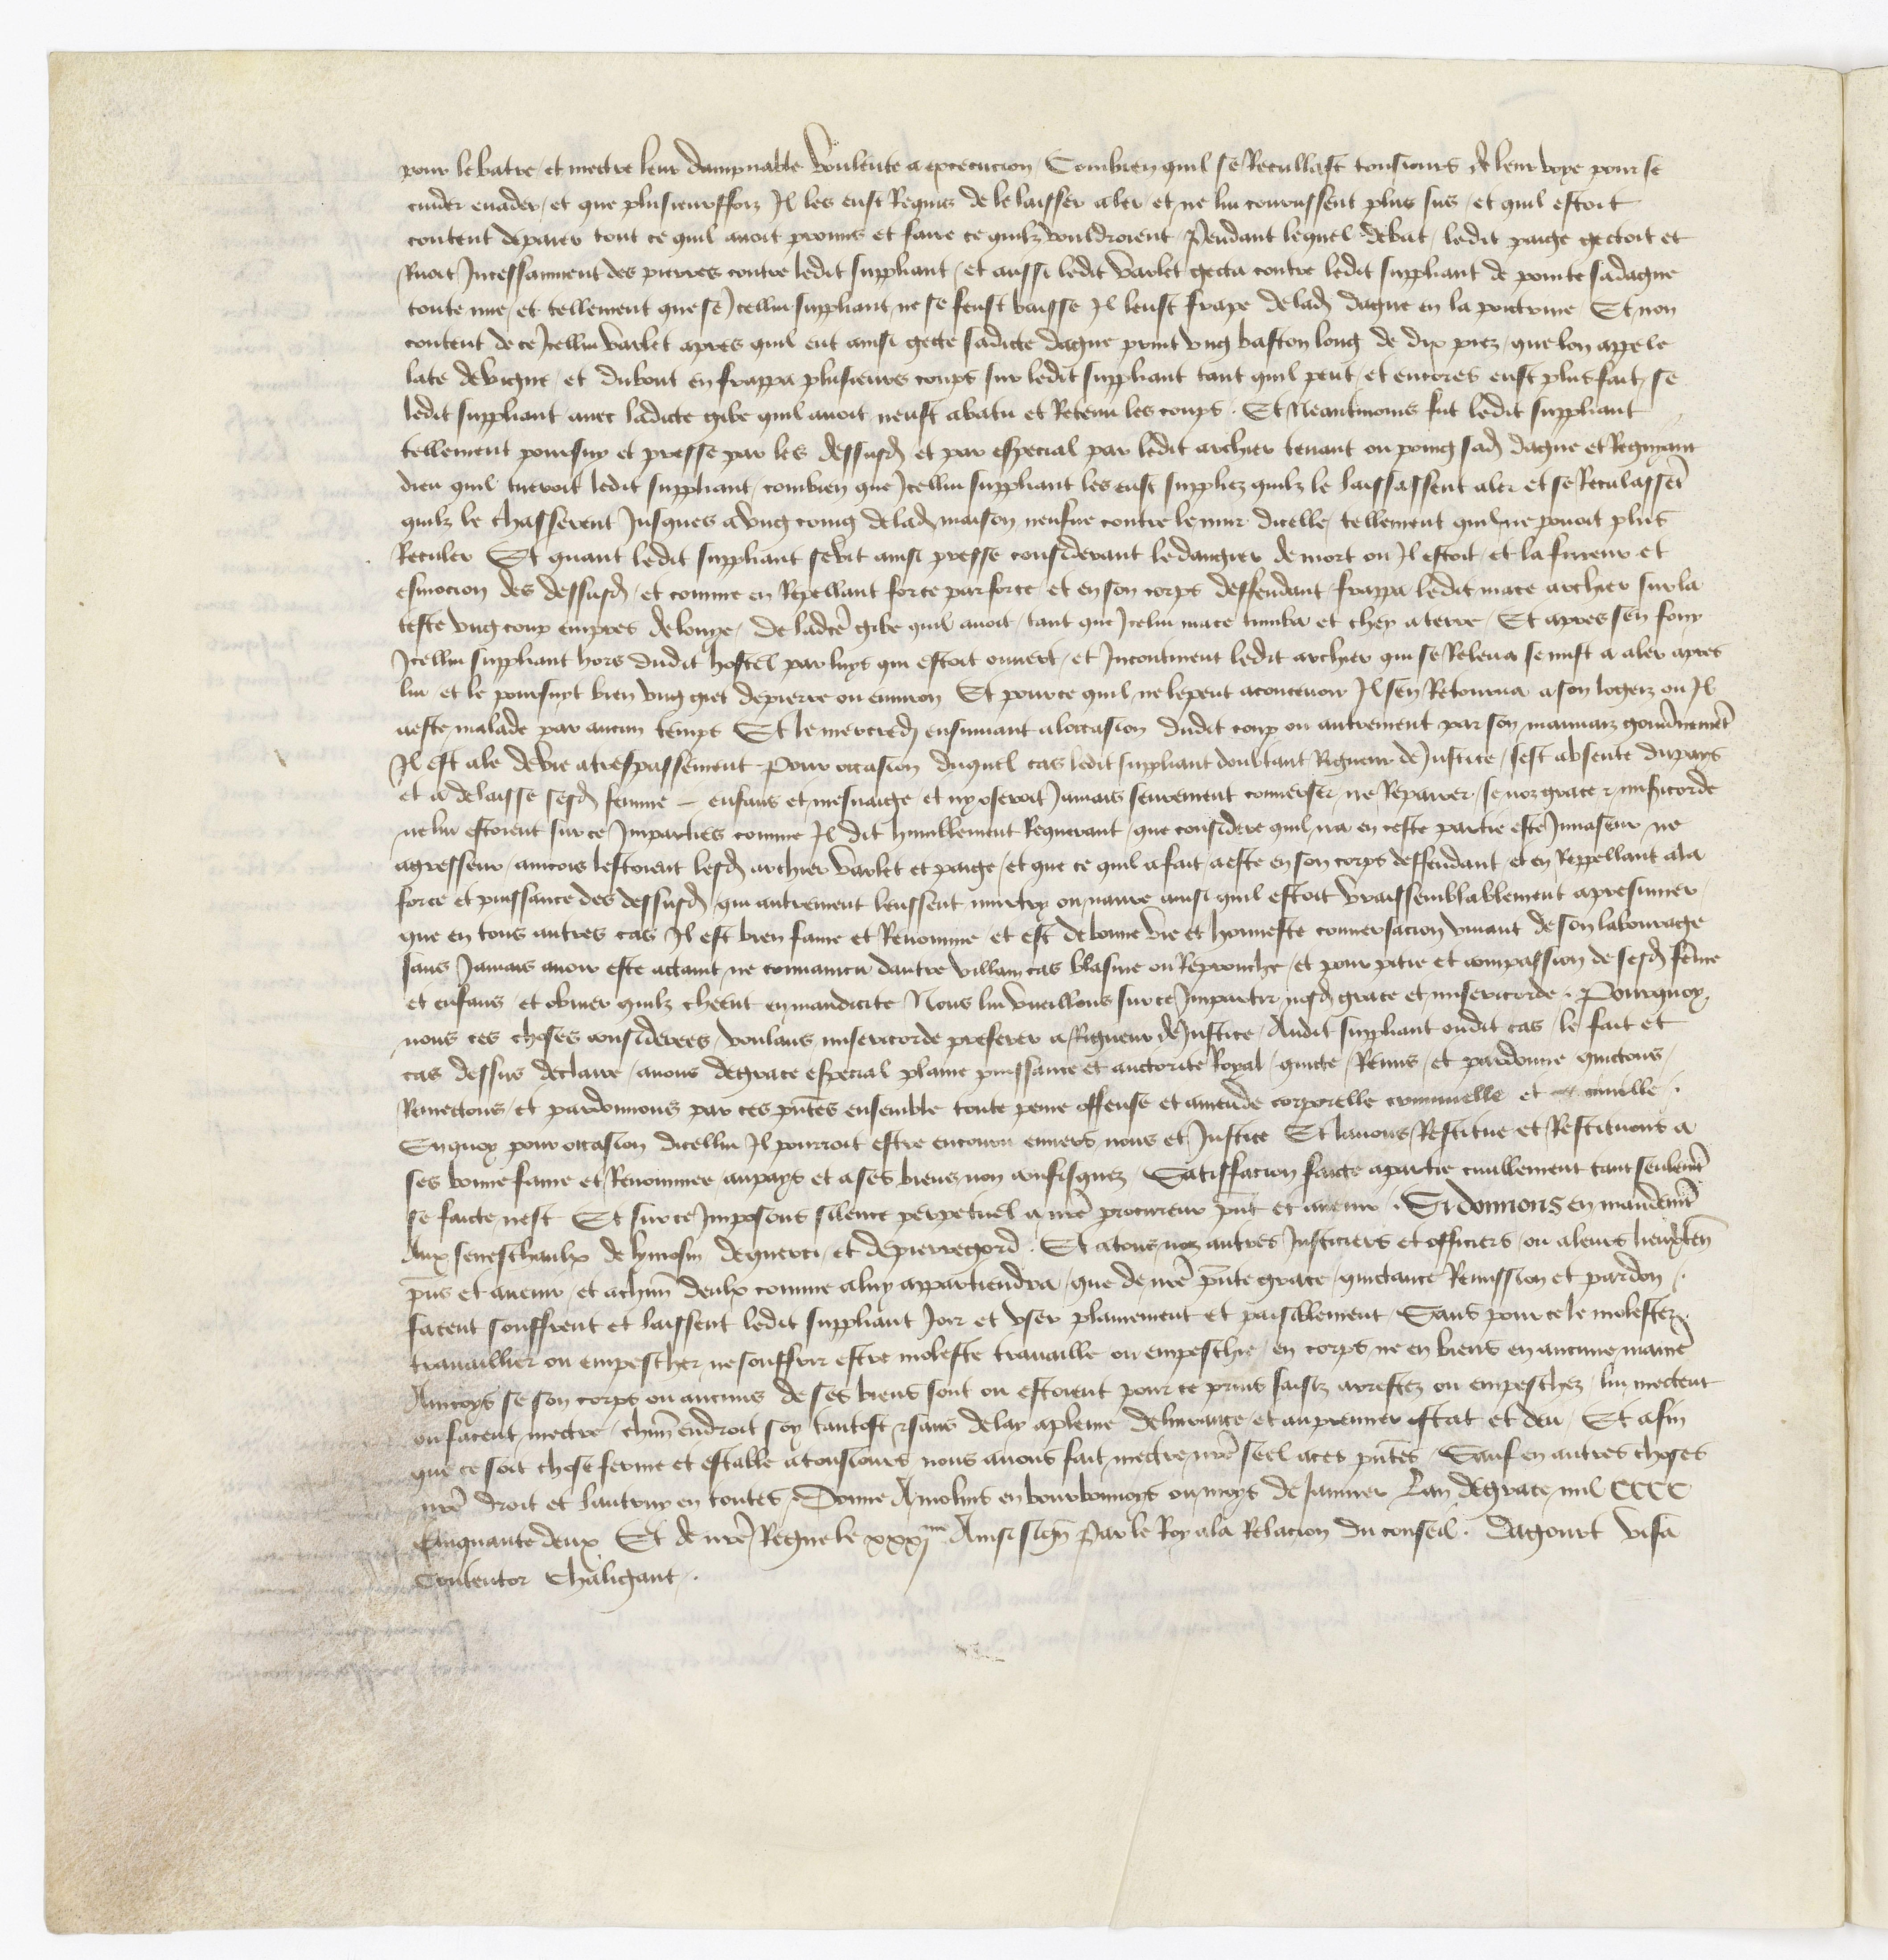 pour le batre / et mectre leur dampnable voulente a execucion / Combien quil se Recullast tousiours de leur voye pour se
cuider euader / et que plusieursffoiz Il les eust Requis de le laisser aler / et ne lui courussent plus sus / et quil estoit
content de paier tout ce quil auoit promis et faire ce quilz vouldroient / Pendant lequel debat / ledit paige gectoit et
Ruoit Incessamment des pierres contre ledit suppliant / et aussi ledit varlet gecta contre ledit suppliant de pointe sa dague
toute nue / et tellement que se Icellui suppliant ne se feust baisse Il leust frape de lad dague en la poictrine Et non
content de ce Icellui varlet apres quil eut ainsi gecte sadicte dague print vng baston long de dix piez / que lon appele
late de vigne / et du bout en frappa plusieurs coups sur ledit suppliant tant quil peut / et encores eust plus fait / se
ledit suppliant auec ladicte gibe quil auoit neust abatu et Retenu les coups . Et Neantmoins fut ledit suppliant
tellement poursuy et presse par les dessusd et par especial par ledit archier tenant ou poing sad dague et Regnyant
dieu quil tueroit ledit suppliant / combien que Icellui suppliant les eust suppliez quilz le laissassent aler et se Reculassent
quilz le chasserent Jusques a vng coing de lad maison neufue contre le mur dicelle / tellement quil ne pouoit plus
Reculer Et quant ledit suppliant se vit ainsi presse considerant le dangier de mort ou Il estoit / et la fureur et
esmocion des dessusd / et comme en Repellant force par force / et en son corps deffendant / frappa ledit mace archier sur la
teste vng coup empres de louye / de ladce gibe quil auoit / tant que Icelui mace tumba et chey a terre / Et apres sen fouy
Icellui suppliant hors dudit hostel par luys qui estoit ouuert / et Incontinent ledit archier qui se Releua se mist a aler apres
lui et le poursuyt bien vng giet de pierre ou enuiron Et pource quil ne le peut aconceuoir Il sen Retourna a son logeiz ou Il
a este malade par aucun temps Et le mercred ensuiuant a loccasion dudit coup ou autrement par son mauuaiz gouuernement
Il est ale de vie a trespassement Pour occasion duquel cas ledit suppliant doubtant Rigueur de Justice / sest absente du pays
et a delaisse sesd femme – enfans et mesnaige / et ny oseroit Jamais seurement conuerser ne Reparer / se noz grace & misericorde
ne lui estoient sur ce Imparties comme Il dit humblement Requerant / que considere quil na en ceste partie este Inuaseur ne
agresseur / aincois lestoient lesd archier varlet et paige / et que ce quil a fait a este en son corps deffendant / et en Reppellant a la
force et puissance des dessusd / qui autrement leussent murtry ou naure ainsi quil estoit vraissemblablement a presumer /
que en tous autres cas Il est bien fame et Renomme / et est de bonne vie et honneste conuersacion viuant de son labourage
sans Jamais auoir este actaint ne conuaincu dautre villain cas blasme ou Reprouche / et pour pitie et compassion de sesd feme
et enfans / et obuier quilz cheent en mandicite Nous lui vueillons sur ce Impartir nosd grace et misericorde . Pourquoy
nous ces choses considerees / voulans misericorde preferer a Rigueur de Justice / Audit suppliant oudit cas / le fait et
cas dessus declaire / auons de grace especial plaine puissance et auctorite Royal / quicte / Remis / et pardonne quictons /
Remectons / et pardonnons par ces pntes ensemble toute peine offense et amende corporelle criminelle et ciuille .
En quoy pour occasion dicellui Il pourroit estre encouru enuers nous et Justice Et lauons Restitue et Restituons a
ses bonne fame et Renommee / au pays et a ses biens non confisquez / Satisfacion faicte a partie ciuillement tant seulemt
se faicte nest Et sur ce Imposons silence perpetuel a nre procureur pnt et auenir . Si donnons en mandemt
Aux seneschaulx de lymosin de querci / et de pierregord . Et a tous noz autres Justiciers et officiers / ou a leurs lieuxten
pns et auenir / et a chun deulx comme a luy appartiendra / que de nre pnte grace / quictance Remission et pardon / .
facent souffrent et laissent ledit suppliant Joir et vser plainement et paisiblement / Sans pour ce le molester /
trauaillier ou empescher ne souffrir estre moleste trauaille ou empeschie / en corps ne en biens en aucune manie
Aincoys se son corps ou aucuns de ses biens sont ou estoient pour ce prins saisiz arrestez ou empeschez / lui mectent
ou facent mectre / chun endroit soy tantost & sans delay a pleine deliurance / et au premier estat et deu / Et afin
que ce soit chose ferme et estable a tousiours nous auons fait mectre nre seel a ces pntes / Sauf en autres choses
nre droit et lautruy en toutes / Donne A molins en bourbonnoys ou moys de Januier Lan de grace mil CCCC
Cinquante deux Et de nre Regne le xxxjme Ainsi signe Par le Roy a la Relacion du conseil . Dagourt Visa
Contentor Chaligaut / .